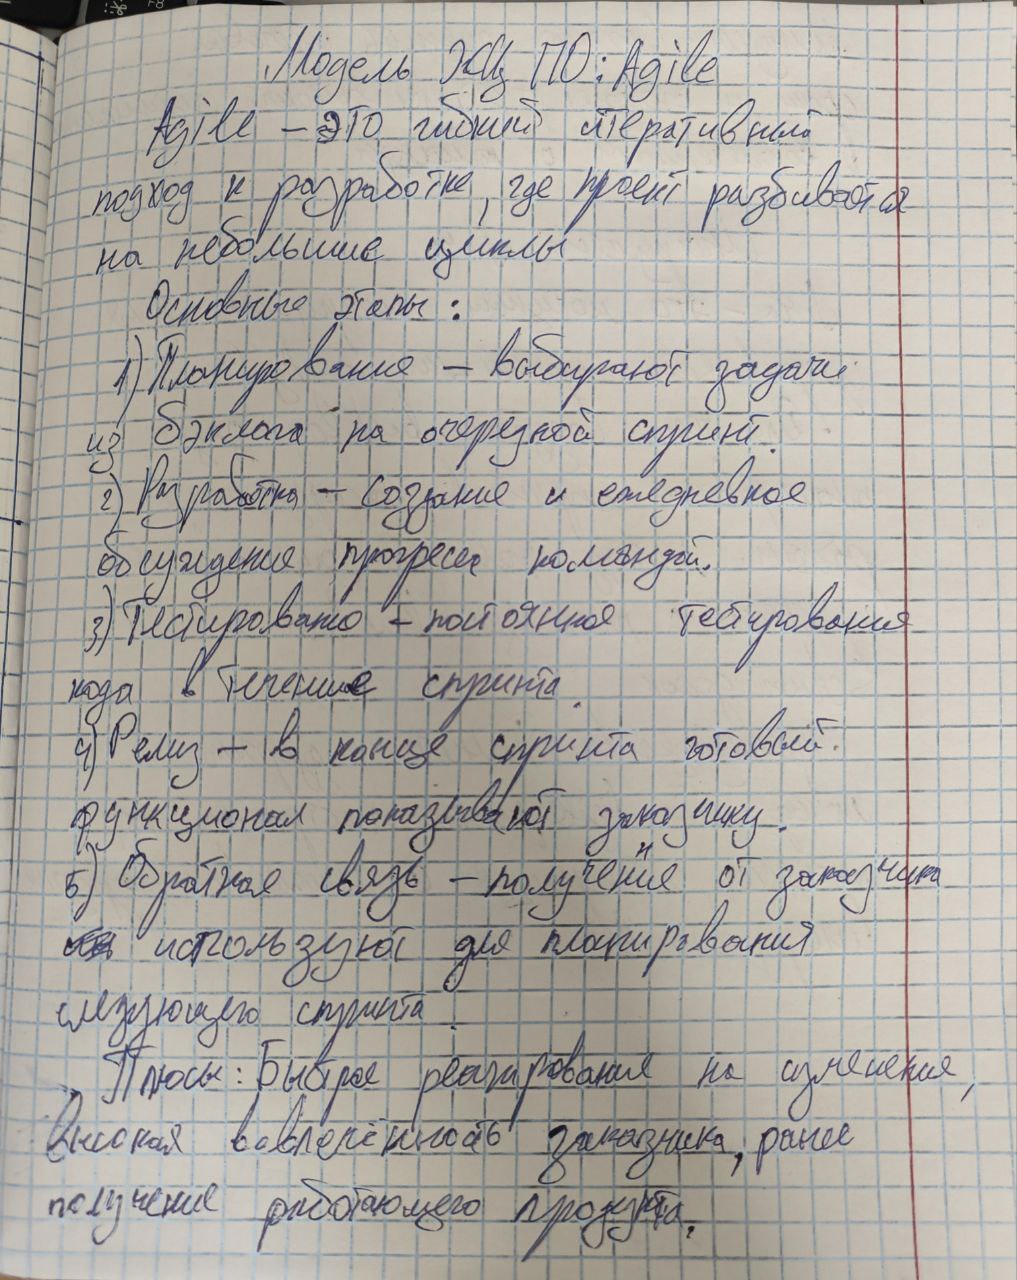 Модель ЖЦ ПО: Agile
Agile – это гибкий итеративный
подход к разработке, где проект разбивается
на небольшие циклы
Основные этапы:
1) Планирование – выбирают задачи
из бэклога на очередной спринт.
2) Разработка – создание и ежедневное
обсуждение прогресса командой.
3) Тестирование – постоянное тестирование
кода в течение спринта.
4) Релиз – в конце спринта готовый
функционал показывают заказчику.
5) Обратная связь – получение от заказчика
используют для планирования
следующего спринта.
Плюсы: Быстрое реагирование на изменения,
высокая вовлечённость заказчика, ранее
получение работающего продукта.